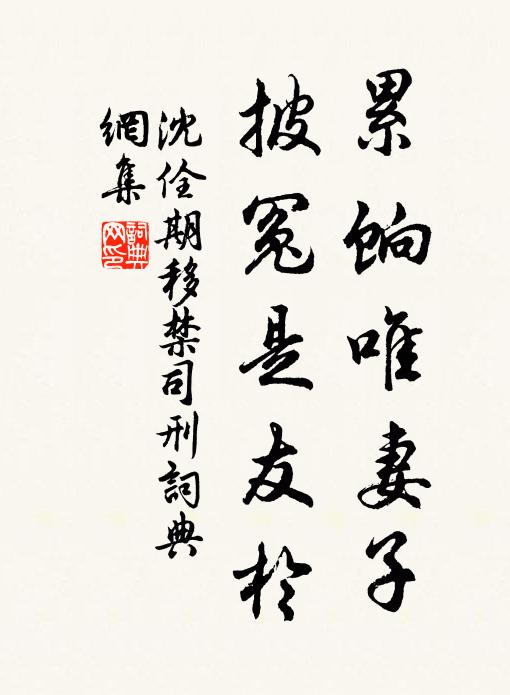 累餉唯妻子
披冤是友於
沈佺期移禁司刑詞典
網集
詞典
网印